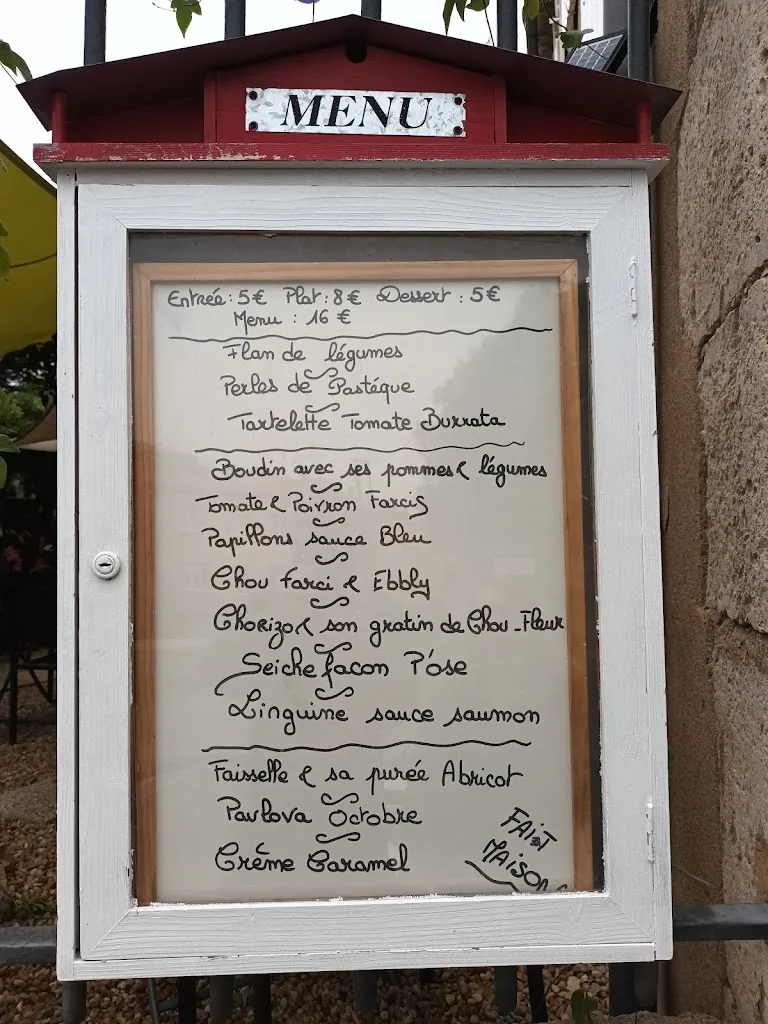 MENU
Entrée : 5€ Plat : 8€ Dessert : 5€
Menu : 16 €
Flan de légumes
Perles de Pastéque
Tartelette Tomate Burrata
Boudin avec ses pommes & légumes
Tomate & Poivron Farcis
Papillons sauce Bleu
Chou farci & Ebbly
Chorizo & son gratin de Chou-Fleur
Seiche façon P'ose
Linguine sauce saumon
Faisselle & sa purée Abricot
Pavlova Octobre
Créme Caramel
FAIT
MAISON